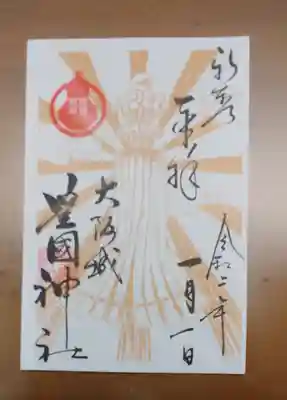 令和二年
一月一日
奉拝
大阪城
豊國神社